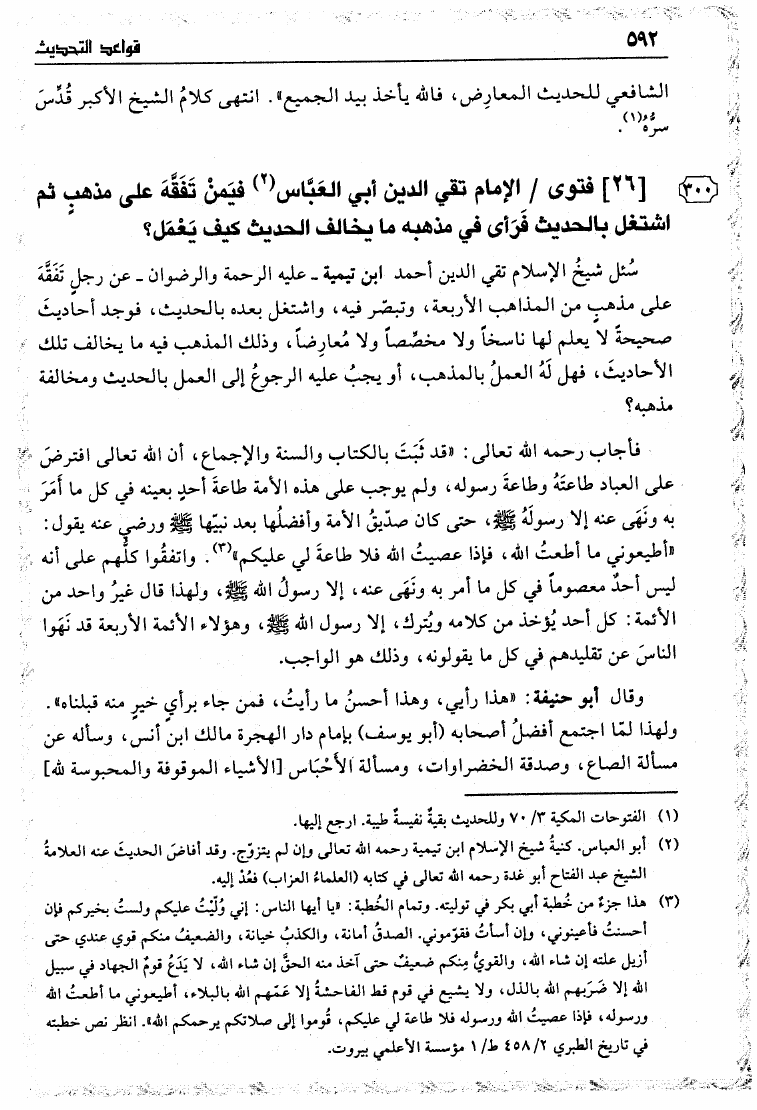 ٥٩٢ قواعد التحديث
الشافعي للحديث المعارِض، فالله يأخذ بيد الجميع». انتهى كلامُ الشيخ الأكبر قُدِّسَ
سرهُ(١).
٣٠٠ [٢٦] فتوى / الإمام تقي الدين أبي العَبَّاس(٢) فيَمنْ تَفَقَّهَ على مذهبٍ ثم
اشتغل بالحديث فَرَأى في مذهبه ما يخالف الحديث كيف يَعْمَل؟
سُئل شيخُ الإسلام تقي الدين أحمد ابن تيمية ـ عليه الرحمة والرضوان ـ عن رجلٍ تَفَقَّهَ
على مذهبٍ من المذاهب الأربعة، وتبصّر فيه، واشتغل بعده بالحديث، فوجد أحاديثَ
صحيحةً لا يعلم لها ناسخاً ولا مخصِّصاً ولا مُعارِضاً، وذلك المذهب فيه ما يخالف تلك
الأحاديثَ، فهل لَهُ العملُ بالمذهب، أو يجبُ عليه الرجوعُ إلى العمل بالحديث ومخالفة
مذهبه؟
فأجاب رحمه الله تعالى: «قد ثَبَتَ بالكتاب والسنة والإجماع، أن الله تعالى افترضَ
على العباد طاعتَهُ وطاعةَ رسوله، ولم يوجب على هذه الأمة طاعةَ أحدٍ بعينه في كل ما أمَرَ
به ونَهَى عنه إلا رسولَهُ ﷺ، حتى كان صدّيقُ الأمة وأفضلُها بعد نبيّها ﷺ ورضي عنه يقول:
«أطيعوني ما أطعتُ الله، فإذا عصيتُ الله فلا طاعةَ لي عليكم»(٣). واتفقُوا كلُّهم على أنه
ليس أحدٌ معصوماً في كل ما أمر به ونَهَى عنه، إلا رسولُ الله ﷺ، ولهذا قال غيرُ واحد من
الأئمة: كل أحد يُؤخذ من كلامه ويُترك، إلا رسول الله ﷺ، وهؤلاء الأئمة الأربعة قد نَهَوا
الناسَ عن تقليدهم في كل ما يقولونه، وذلك هو الواجب.
وقال أبو حنيفة: «هذا رأيي، وهذا أحسنُ ما رأيتُ، فمن جاء برأيٍ خيرٍ منه قبلناه».
ولهذا لمّا اجتمع أفضلُ أصحابه (أبو يوسف) بإمام دار الهجرة مالك ابن أنس، وسأله عن
مسألة الصاع، وصدقة الخضراوات، ومسألة الأحْبَاس [الأشياء الموقوفة والمحبوسة لله]
(١) الفتوحات المكية ٣/ ٧٠ وللحديث بقيةٌ نفيسةٌ طيبة. ارجع إليها.
(٢) أبو العباس. كنيةُ شيخ الإسلام ابن تيمية رحمه الله تعالى وإن لم يتزوّج. وقد أفاضَ الحديثَ عنه العلامةُ
الشيخ عبد الفتاح أبو غدة رحمه الله تعالى في كتابه (العلماءُ العزاب) فعُدْ إليه.
(٣) هذا جزءٌ من خُطبة أبي بكر في توليته. وتمام الخُطبة: «يا أيها الناس: إني وُلّيْتُ عليكم ولستُ بخيركم فإن
أحسنتُ فأعينوني، وإن أسأتُ فقوّموني. الصدقُ أمانة، والكذبُ خيانة، والضعيفُ منكم قوي عندي حتى
أزيل علته إن شاء الله، والقويُّ مِنكم ضعيفٌ حتى آخذ منه الحقَّ إن شاء الله، لا يَدَعُ قومٌ الجهاد في سبيل
الله إلا ضَرَبهم الله بالذل، ولا يشيع في قوم قط الفاحشةُ إلا عَمّهم الله بالبلاء، أطيعوني ما أطعتُ الله
ورسوله، فإذا عصيتُ الله ورسوله فلا طاعة لي عليكم، قُوموا إلى صلاتكم يرحمكم الله». انظر نص خطبته
في تاريخ الطبري ٢/ ٤٥٨ ط/ ١ مؤسسة الأعلمي بيروت.